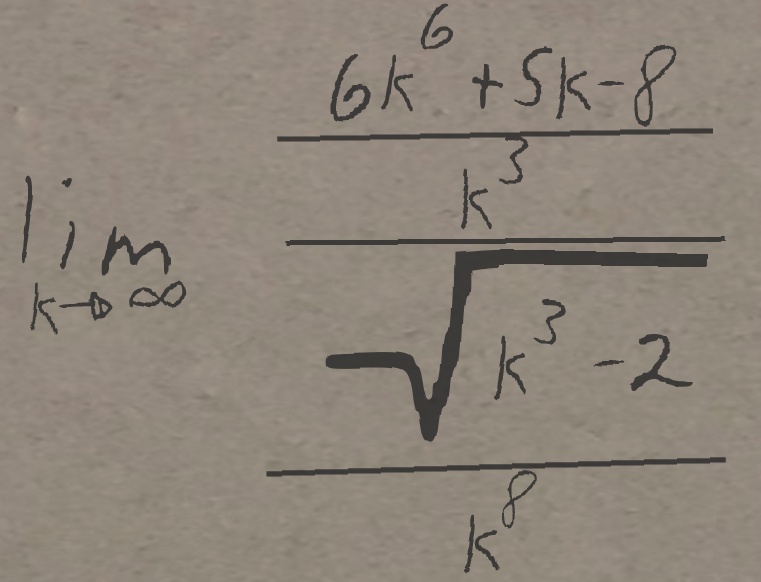 lim k→∞
6k^6 + 5k - 8
k^3
√(k^3 - 2)
k^8